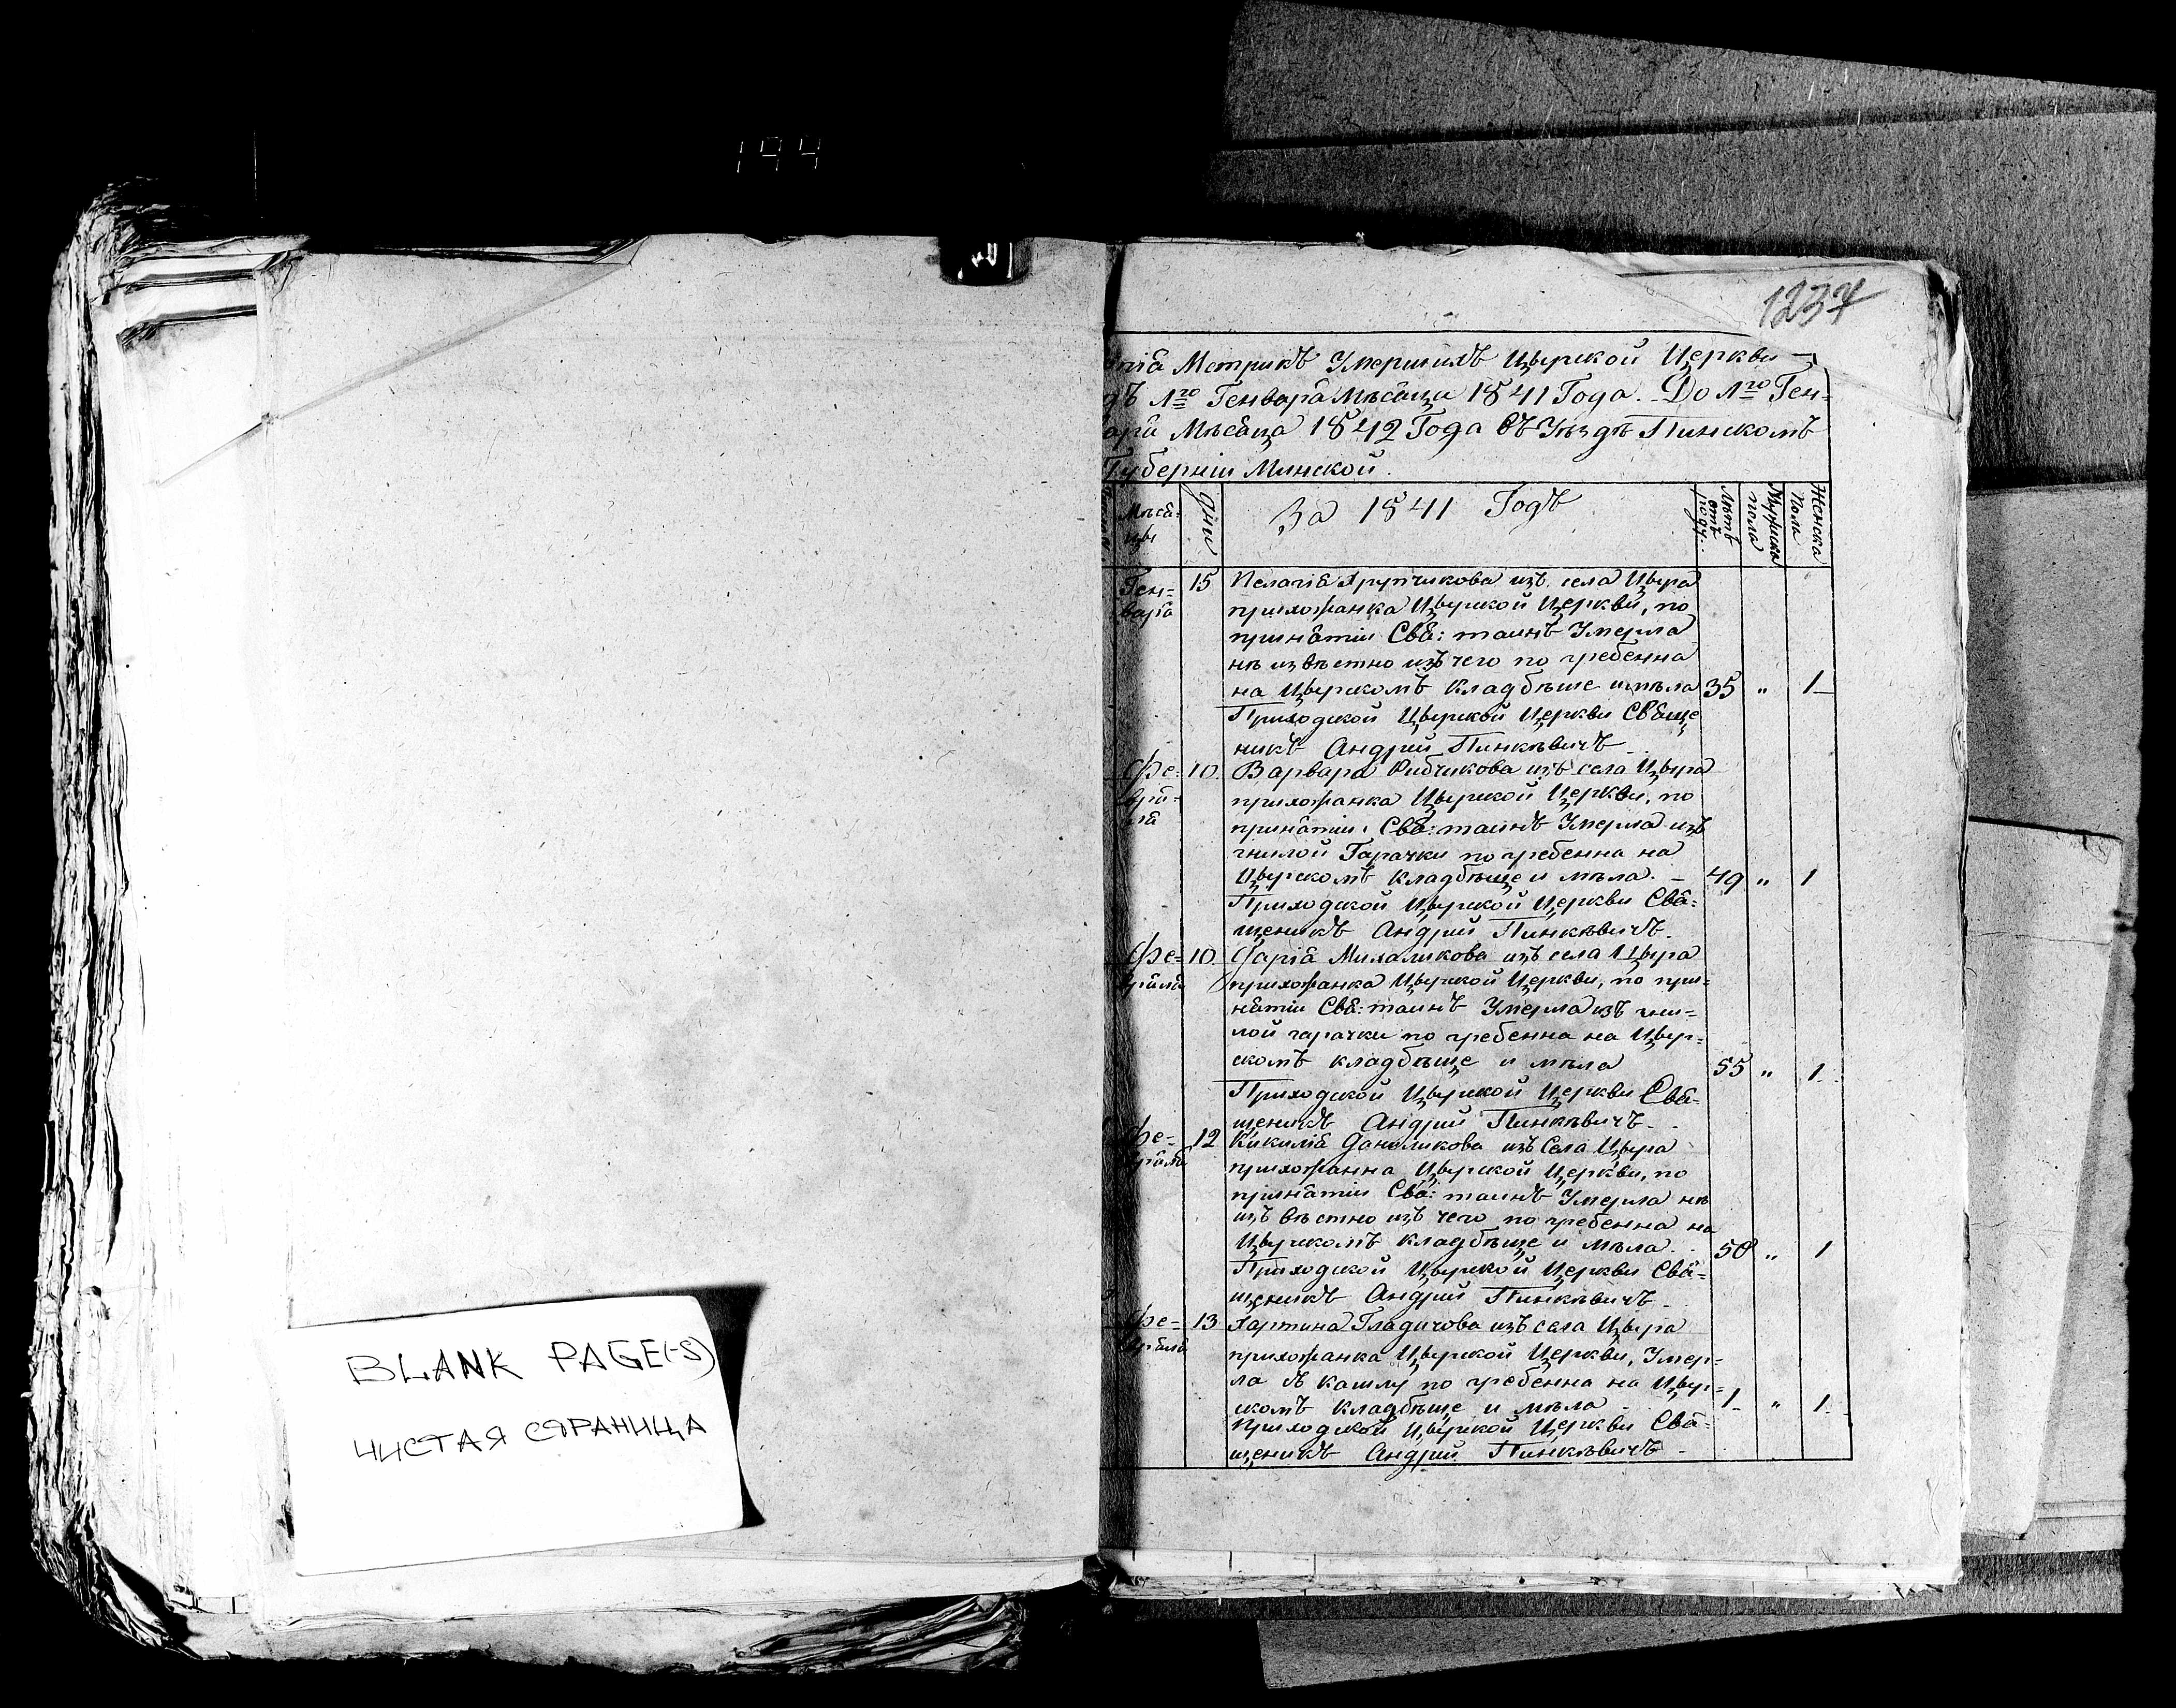 194
1237
Метрикъ Умершихъ Цырской Церкви
1го Генваря Мѣсяца 1841 Года. До 1го Ген=
Мѣсяца 1842 Года Въ Уѣздѣ Пинскомъ
Губерніи Минской.
Мѣся=
цы
дни
За 1841 Годъ
Лѣтъ
отъ
роду
Мужска
пола
Женска
Пола
Ген=
варя
15
Пелагія Хрупчикова изъ села Цыра
прихожанка Цырской Церкви, по
принятіи Свя: таинъ Умерла
нѣ извѣстно изъ чего по гребенна
на Цырскомъ кладбѣще имѣла
35 " 1
Приходской Цырской Церкви Священ
никъ Андрій Пинкѣвичъ
Фе=
вра=
ля
10
Варвара Рибчикова изъ села Цыра
прихожанка Цырской Церкви, по
принятіи Свя: таинъ Умерла изъ
гнилой Гарачки по гребенна на
Цырскомъ кладбѣще и мѣла. –
49 " 1
Приходской Цырской Церкви Свя=
щеникъ Андрій Пинкѣвичъ.
Фе=
враля
10
Дарія Михаликова изъ села Цыра
прихожанка Цырской Церкви, по при=
нятіи Свя: таинъ Умерла изъ гни=
лой гарачки по гребенна на Цыр=
скомъ кладбѣще и мѣла
55 " 1
Приходской Цырской Церкви Свя=
щеникъ Андрій Пинкѣвичъ.
Фе=
враля
12
Кикилія Даниликова изъ Села Цыра
прихожанна Цырской Церкви, по
принятіи Свя: таинъ Умерла нѣ
изъ вѣстно изъ чего по гребенна на
Цырскомъ кладбѣще и мѣла.
50 " 1
Приходской Цырской Церкви Свя=
щеникъ Андрій Пинкѣвичъ
Фе=
враля
13
Хартина Гладичова изъ села Цыра
прихожанка Цырской Церкви, Умер=
ла съ кашлу по гребенна на Цыр=
скомъ кладбѣще и мѣла
1 " 1
Приходской Цырской Церкви Свя=
щеникъ Андрій Пинкѣвичъ
BLANK PAGE(-S)
ЧИСТАЯ СТРАНИЦА